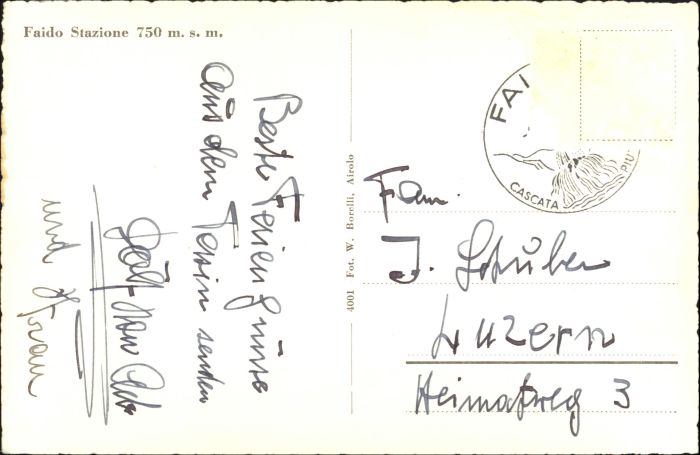 Faido Stazione 750 m. s. m.
Beste Feriengrüsse
aus dem Tessin senden
und Frau
4001 Fot. W. Borelli, Airolo
FAI
CASCATA PIU
Fam.
J. Schuber
Luzern
Heimatweg 3